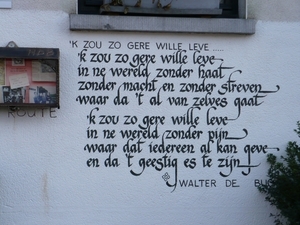 'K ZOU ZO GERE WILLE LEVE .....
'k zou zo gere wille leve
in ne wereld zonder haat
zonder macht en zonder streven
waar da 't al van zelves gaat
'k zou zo gere wille leve
in ne wereld zonder pijn
waar dat iedereen al kan geve
en da 't geestig es te zijn
WALTER DE
ROUTE